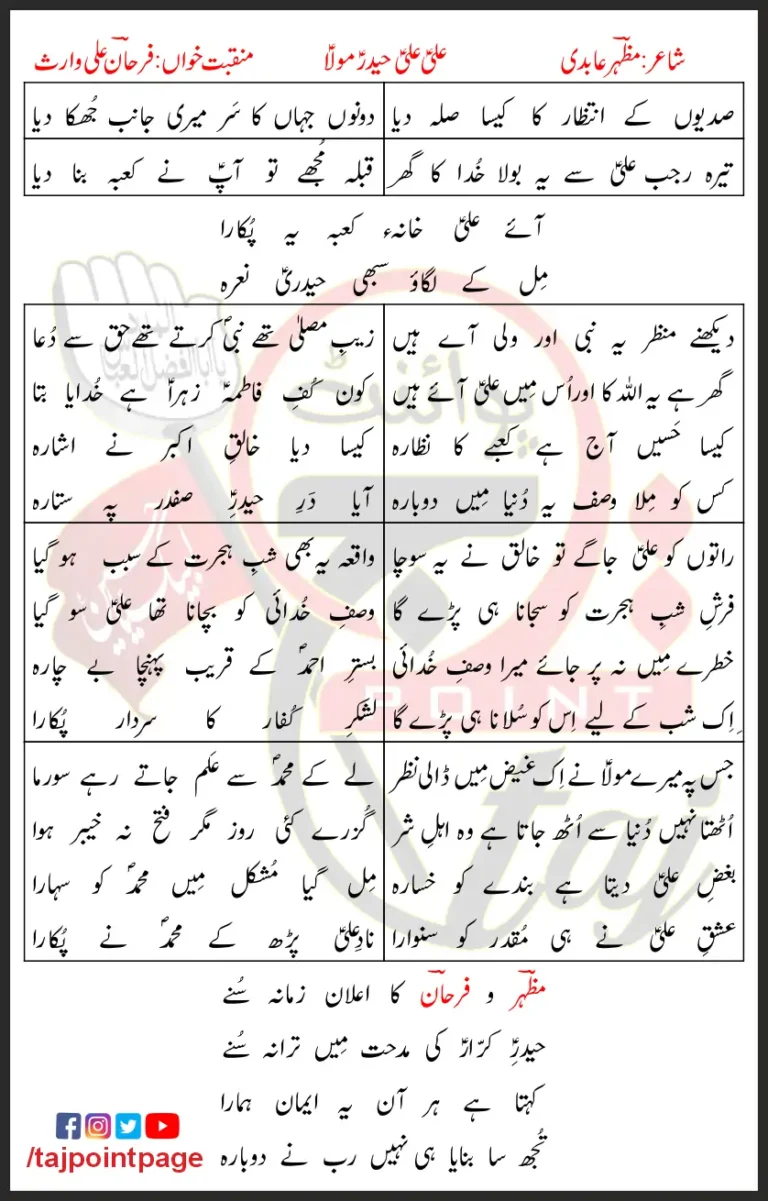 شاعر: مظہر عابدی علیؑ علیؑ حیدرؑ مولاؑ منقبت خواں: فرحان علی وارث
صدیوں کے انتظار کا کیسا صلہ دیا دونوں جہاں کا سَر میری جانب جُھکا دیا
تیرہ رجب علیؑ سے یہ بولا خُدا کا گھر قبلہ مُجھے تو آپؑ نے کعبہ بنا دیا
آئے علیؑ خانہء کعبہ یہ پُکارا
مِل کے لگاؤ سبھی حیدریؑ نعرہ
دیکھنے منظر یہ نبی اور ولی آے ہیں زیبِ مصلیٰ تھے نبیؐ کرتے تھے حق سے دُعا
گھر ہے یہ اللہ کا اور اُس مِیں علیؑ آئے ہیں کون کُفِ فاطمہؑ زہراؑ ہے خُدایا بتا
کیسا حَسیں آج ہے کعبے کا نظارہ کیسا دیا خالقِ اکبر نے اشارہ
کس کو مِلا وصف یہ دُنیا مِیں دوبارہ آیا دَرِ حیدرِؑ صفدر پہ ستارہ
راتوں کو علیؑ جاگے تو خالق نے یہ سوچا واقعہ یہ بھی شبِ ہجرت کے سبب ہو گیا
فرشِ شبِ ہجرت کو سجانا ہی پڑے گا وصفِ خُدائی کو بچانا تھا علیؑ سو گیا
خطرے مِیں نہ پر جائے میرا وصفِ خُدائی بسترِ احمدؐ کے قریب پہنچا بے چارہ
اِک شب کے لیے اِس کو سُلانا ہی پڑے گا لشکرِ کُفار کا سردار پُکارا
جس پہ میرے مولاؑ نے اِک غیض مِیں ڈالی نظر لے کے محمدؐ سے علم جاتے رہے سورما
اُٹھتا نہیں دُنیا سے اُٹھ جاتا ہے وہ اہلِ شر گُزرے کئی روز مگر فتح نہ خیبر ہوا
بغضِ علیؑ دیتا ہے بندے کو خسارہ مِل گیا مُشکل مِیں محمدؐ کو سہارا
عشقِ علیؑ نے ہی مُقدر کو سنوارا نادِعلیؑ پڑھ کے محمدؐ نے پُکارا
مظہر و فرحان کا اعلان زمانہ سُنے
حیدرِؑ کرّارؑ کی مدحت مِیں ترانہ سُنے
کہتا ہے ہر آن یہ ایمان ہمارا
تُجھ سا بنایا ہی نہیں رب نے دوبارہ
/tajpointpage
پوائنٹ
POINT
taj